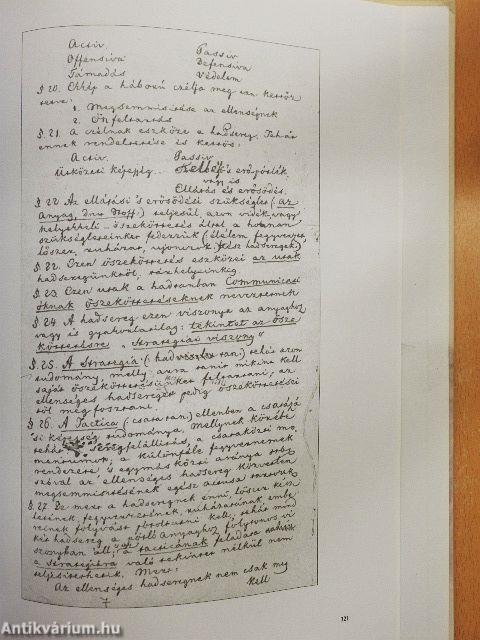 Activ. Passiv
Offensiva Defensiva
Támadás Védelem
§ 20. a háború czélja meg van kettőz
tetve:
1. Megsemmisitése az ellenségnek
2. Önfentartás
§ 21. a czélnak eszköze a hadsereg. Tehát
ennek rendeltetése is kettős:
Activ. Passiv
Ütközeti képesség. erőpótlék
vagy is
Ellátás és erősödés.
§ 22 Az ellátási 's erősödési szükséglet (az
anyag, Stoff.) teljesül azon vidék vagy
helyekkeli összeköttetés által a honnan
szükségleteinket fedezzük (élelem fegyverzet
lőszer, ruházat, ujoncz, kész hadseregek)
§ 22. Ezen összeköttetés eszközei az utak
hadseregünktől,
§ 23 Ezen utak a hadtanban Communicati
óknak összeköttetéseknek neveztetnek
§ 24 A hadsereg ezen viszonya az anyaghoz
vagy is gyakorlatilag: tekintet az össze
köttetésre „Strategiai viszony“
§. 25. A Strategia (had tan) tehát azon
tudomány melly arra tanit miként kell
saját összeköttetéseinket feltartani, az
ellenséges hadsereget pedig összeköttetései
től megfosztani.
§ 26. A Tactica (csata tan) ellenben a csatázá
si tudománya, mellynek közébe
tehát seregfelállitás, a csataközi mo
mentumok, a különféle fegyvernemek
rendezete 's egymásközti aránya
szóval az ellenséges hadsereg közvetlen
megsemmisitésének egész
§. 27. De mert a hadseregnek enni, lőszer kész
letének, fegyverzetének, ruházatának embe
reinek folyvást pótoltatni kell; tehát mind
két hadsereg a pótló anyaghoz folytonos vi
szonyban áll, 's a tacticának feladata
a strategiára való tekintet nélkül nem
teljesittethetik. Mert:
Az ellenséges hadseregnek nem csak meg
kell
7
121
Antikvárium.hu